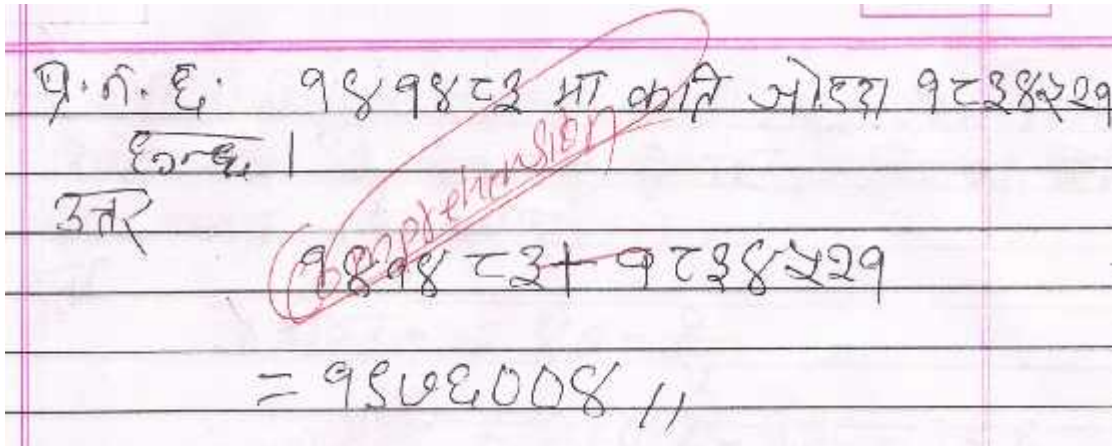 प्र.नं. ६. १४१४८३ मा कति जोड्दा १८३४५२१
हुन्छ।
उत्तर
comprehension
१४१४८३ + १८३४५२१
= १९७६००४ ,,